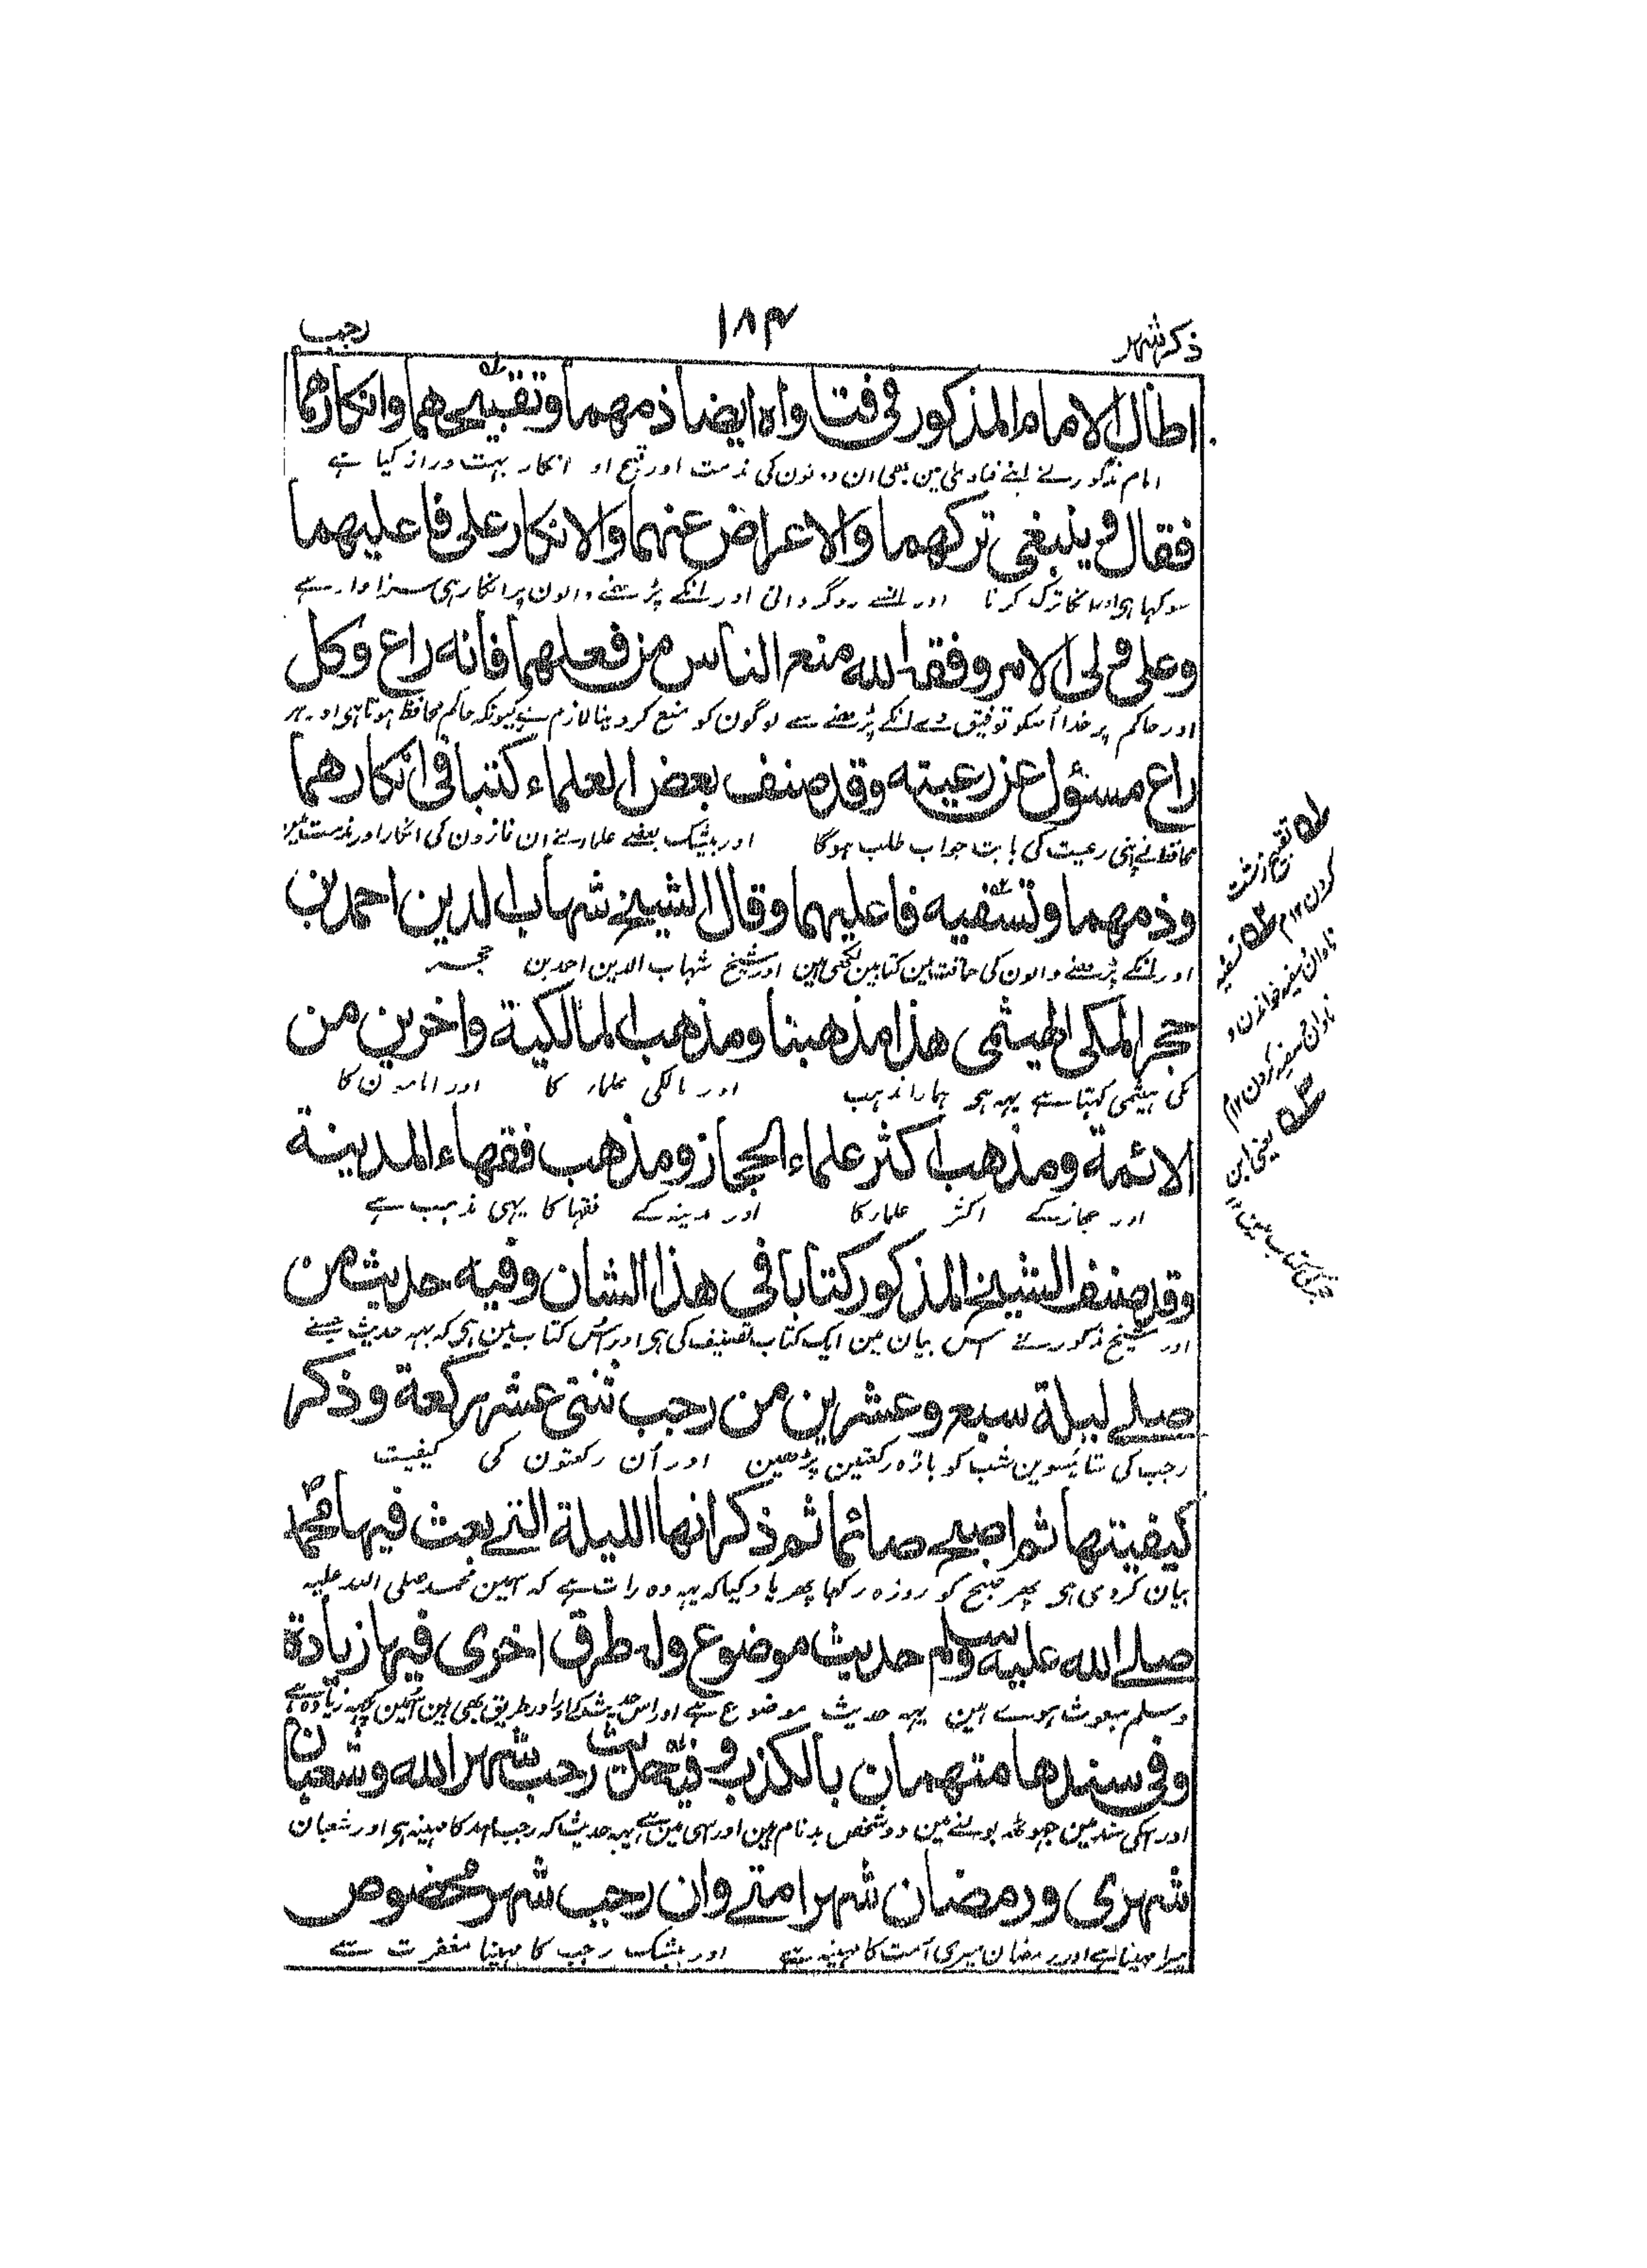 ذکر شهر ۱۸۴ رجب
اطال الامام المذكور في فتاواه ايضا ذمهما وتقبيحهما وانكارهما
امام مذکور نے اپنے فتاویٰ مین بھی ان دونون کی مذمت اور قبح او انکار بہت دراز کیا ہے
فقال وينبغي تركهما والاعراض عنهما والانكار على فاعليهما
سو کہا ہی اور انکا ترک کرنا اور انسے روگردانی اور انکے پڑھنے والون پر انکار ہی سزاوار ہے
وعلى ولي الامر وفقه الله منع الناس من فعلهما فانه راع وكل
اور حاکم پر خدا اُسکو توفیق دے انکے پڑھنے سے لوگون کو منع کر دینا لازم ہے کیونکہ حاکم محافظ ہوتا ہی اور ہر
راع مسئول عن رعيته وقد صنف بعض العلماء كتبا في انكارهما
محافظ نے اپنی رعیت کی بابت جواب طلب ہوگا اور بیشک بعضے علما نے ان نمازون کی انکار اور مذمت مین
وذمهما وتسفيه فاعليهما وقال الشيخ شهاب الدين احمد بن
اور انکے پڑھنے والون کی حماقت مین کتابین لکھی ہین اور شیخ شہاب الدین احمد بن حجر
حجر المكي الهيثمي هذا مذهبنا ومذهب المالكية واخرين من
مکی ہیثمی کہتا ہے یہہ ہی ہمارا مذہب اور مالکی علما کا اور امامون کا
الائمة ومذهب اكثر علماء الحجاز ومذهب فقهاء المدينة
اور حجاز کے اکثر علما کا اور مدینہ کے فقہا کا یہی مذہب ہے
وقد صنف الشيخ المذكور كتابا في هذا الشان وفيه حديث من
اور شیخ مذکور نے اس بیان مین ایک کتاب تصنیف کی ہی اور اس کتاب مین ہی کہ یہہ حدیث جسنے
صلے ليلة سبع وعشرين من رجب ثنتي عشر ركعة وذكر
رجب کی ستائیسوین شب کو بارہ رکعتین پڑھین اور اُن رکعتون کی کیفیت
كيفيتها ثم اصبح صائما ثم ذكر انها الليلة التے بعث فيها محمد
بیان کردی ہی پھر صبح کو روزہ رکھا پھر یاد کیا کہ یہہ وہ رات ہے کہ اسمین محمد صلی اللہ علیہ
صلے الله عليه وسلم حديث موضوع وله طرق اخرى فيها زيادة
وسلم مبعوث ہوے ہین یہہ حدیث موضوع ہے اور اس حدیث کے اور طریق بھی ہین اُنمین کچھہ زیادہ ہے
وفي سندها متهمان بالكذب وفيه حديث رجب شهر الله وشعبان
اور اسکی سند مین جھوٹھہ بولنے مین دو شخص بدنام ہین اور اسی مین ہے یہہ حدیث کہ رجب اللہ کا مہینہ ہی اور شعبان
شهري ورمضان شهر امتے وان رجب شهر مخصوص
میرا مہینا ہے اور رمضان میری اُمت کا مہینہ ہے اور بیشک رجب کا مہینا مغفرت سے
تقبیح زشت
کردن ۱۲ م تسفیہ
نادان سفیہ خواندن و
نادان سفیہ کردن ۱۲ م
یعنی ابن